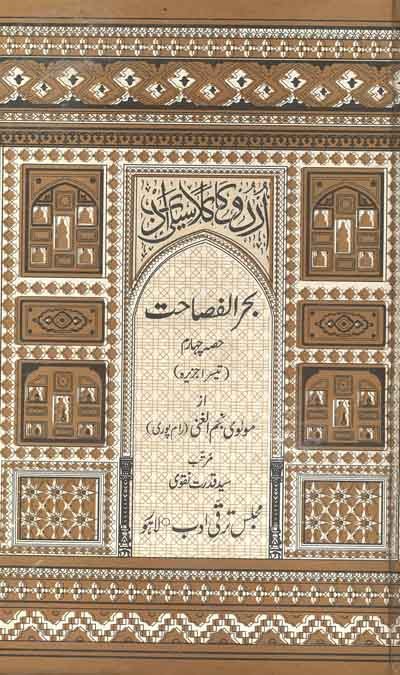 اُردو کا کلاسیکی ادب
بحر الفصاحت
حصہ چہارم
(تیسرا جزیرہ)
از
مولوی نجم الغنی (رام پوری)
مرتّب
سید قدرت نقوی
مجلسِ ترقیِ ادب ○ لاہور